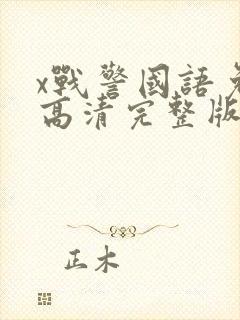 x戰警國語免
高清完整版
正木